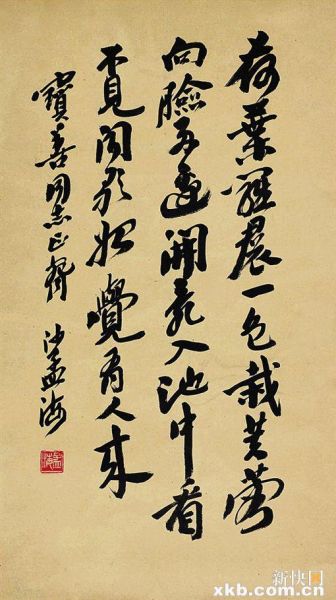 荷葉羅裠一色裁芙蓉
向臉兩邊開亂入池中看
不見聞歌始覺有人來
寶喜同志正 沙孟海
新快网
xkb.com.cn